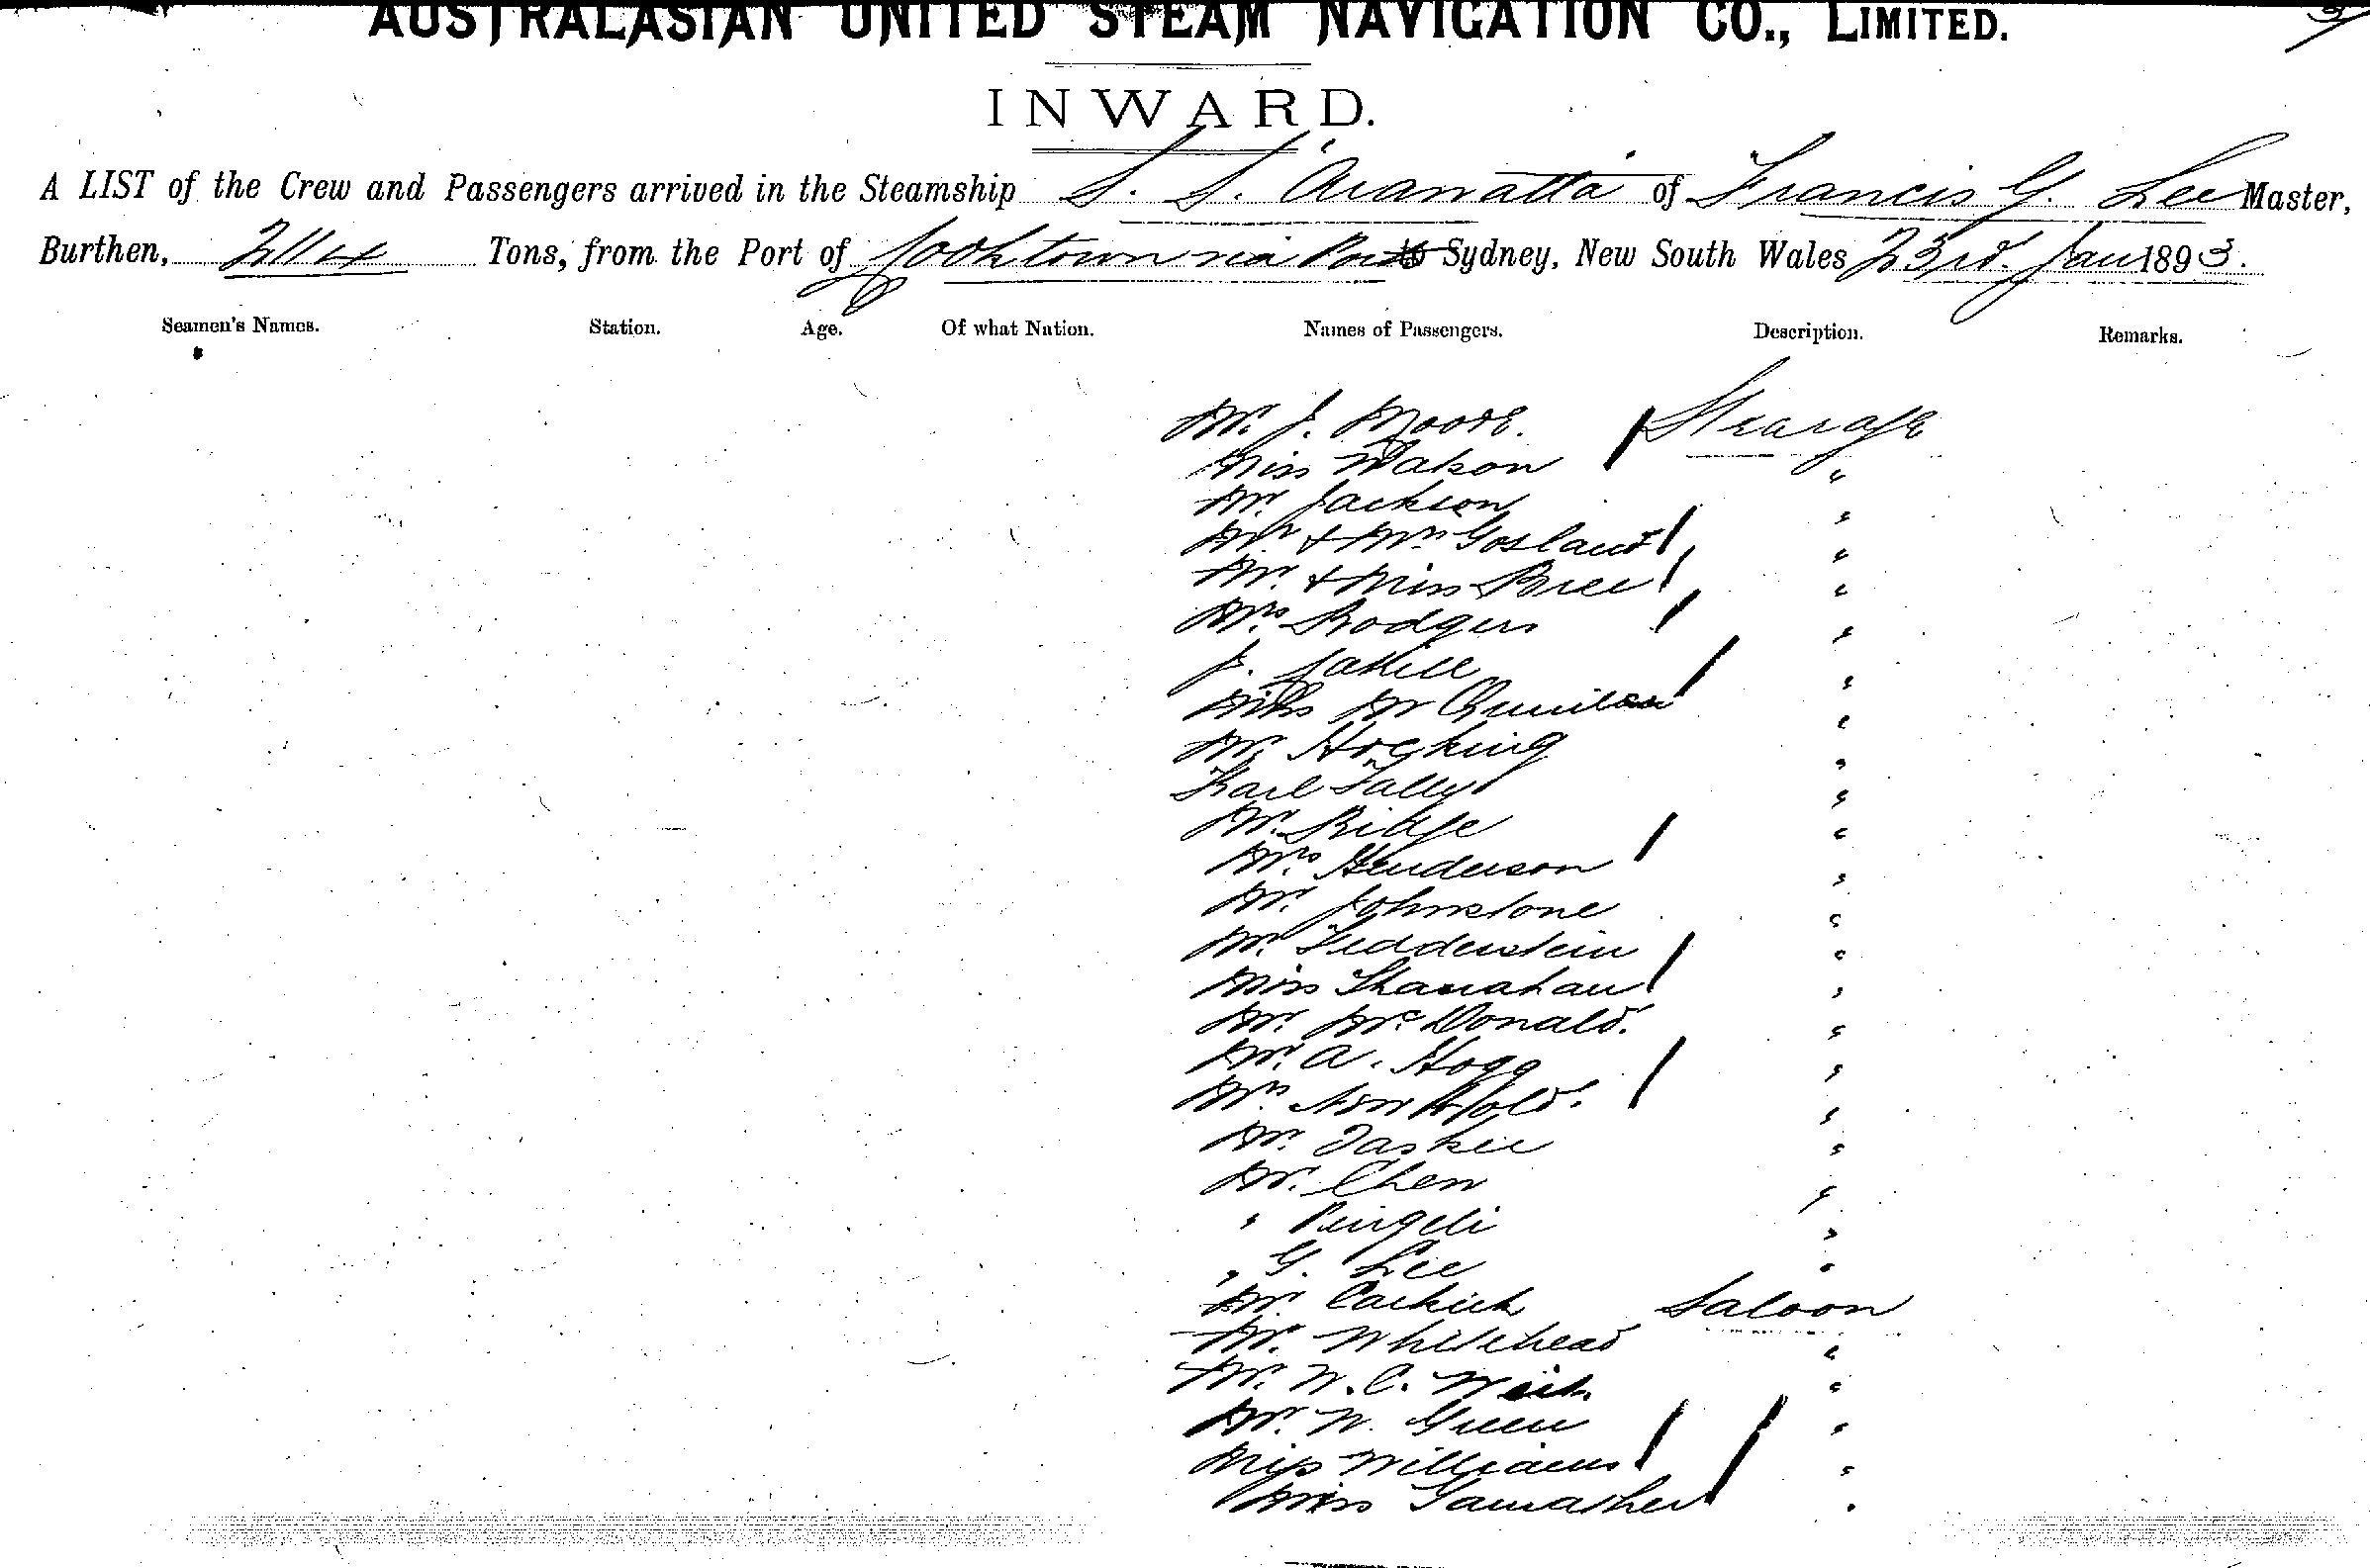 AUSTRALASIAN UNITED STEAM NAVIGATION CO., LIMITED.
INWARD.
A LIST of the Crew and Passengers arrived in the Steamship S. S. Aramatta of Francis G. Lee Master,
Burthen, 2114 Tons, from the Port of Cooktown via Ports to Sydney, New South Wales 23rd Jan 1893.
Seamen's Names. Station. Age. Of what Nation. Names of Passengers. Description. Remarks.
Mr. J. Moore. Steerage
Miss Watson "
Mr. Jackson "
Mr & Mrs Gosland "
Mr. & Miss Bree "
Mrs Rodgers "
J. Cahill "
Miss "
Mr. Hocking "
Karl Sally "
Mr. Ridge "
Mrs Henderson "
Mr. Johnstone "
Mr. Fedderstein "
Miss Shanahan "
Mr. McDonald. "
Mr. A. Hogg "
Mrs "
Mr. "
Mr. Chen "
" "
" G. Lee "
Mr. Saloon
Mr. Whitehead "
Mr. W. C. "
Mr. W. Green "
Miss Williams "
Miss "